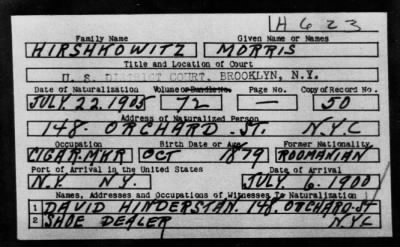 H 623
Family Name Given Name or Names
HIRSHKOWITZ MORRIS
Title and Location of Court
U. S. DISTRICT COURT, BROOKLYN, N.Y.
Date of Naturalization Volume or Bundle No. Page No. Copy of Record No.
JULY 22. 1905 72 — 50
Address of Naturalized Person
148. ORCHARD. ST. N.Y.C
Occupation Birth Date or Age Former Nationality
CIGAR.MKR OCT 1879 ROOMANIAN
Port of Arrival in the United States Date of Arrival
N.Y. N.Y. JULY 6. 1900
Names, Addresses and Occupations of Witnesses To Naturalization
1 DAVID WINDERSTAN. 148. ORCHARD. ST
2 SHOE DEALER N.Y.C